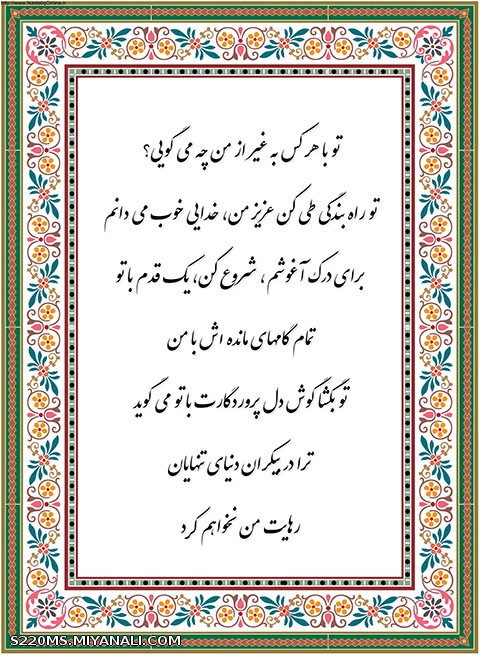 http://www.NastaliqOnline.ir
تو با هر کس به غیر از من چه می گویی؟
تو راه بندگی طی کن عزیز من، خدایی خوب می دانم
برای درک آغوشم ، شروع کن، یک قدم با تو
تمام گامهای مانده اش با من
تو بگشا گوش دل پروردگارت با تو می گوید
ترا در بیکران دنیای تنهایان
رهایت من نخواهم کرد
S220MS.MIYANALI.COM